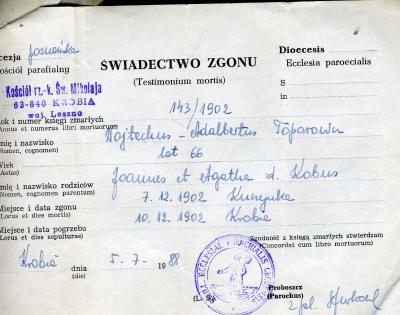 cezja Poznańska
Dioecesis
ościół parafialny
ŚWIADECTWO ZGONU
Ecclesia paroecialis
(Testimonium mortis)
S
Kościół rz.-k. Św. Mikołaja
63-840 KROBIA
woj. Leszno
in
143/1902
ok i numer księgi zmarłych
(Annus et numerus libri mortuorum)
mię i nazwisko
(Nomen, cognomen)
Wojtechus - Adalbertus
Wiek
(Aetas)
lat 66
mię i nazwisko rodziców
(Nomen, cognomen parentum)
Joannes et Agatha d. Kobus
Miejsce i data zgonu
(Locus et dies mortis)
7.12.1902
Miejsce i data pogrzebu
(Locus et dies sepulturae)
10.12.1902 Krobia
Zgodność z księgą zmarłych stwierdzam
(Concordat cum libro mortuorum)
Krobia dnia 5-7- 1988
(die)
(L. S.)
Proboszcz
(Parochus)